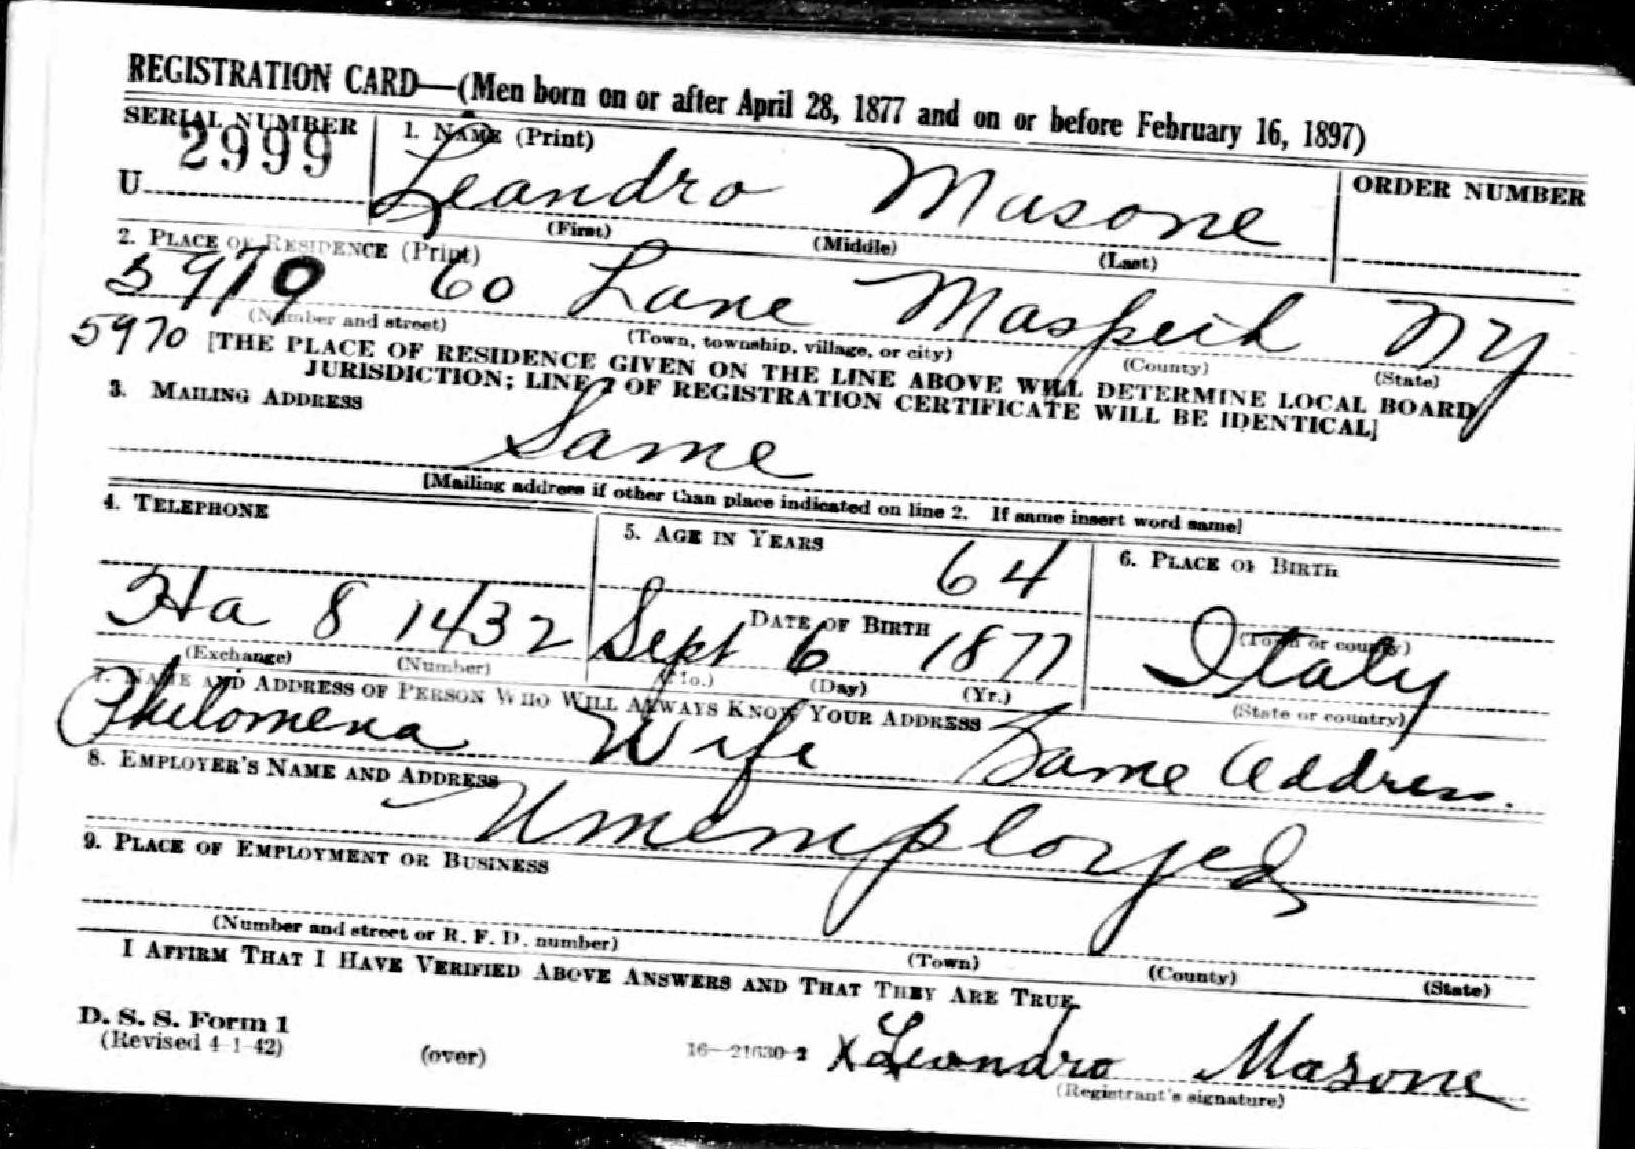 REGISTRATION CARD—(Men born on or after April 28, 1877 and on or before February 16, 1897)
SERIAL NUMBER 1. NAME (Print) ORDER NUMBER
U 2999 Leandro Masone
(First) (Middle) (Last)
2. PLACE OF RESIDENCE (Print)
60 Lane Maspeth NY
(Number and street) (Town, township, village, or city) (County) (State)
5970 [THE PLACE OF RESIDENCE GIVEN ON THE LINE ABOVE WILL DETERMINE LOCAL BOARD
JURISDICTION; LINE 2 OF REGISTRATION CERTIFICATE WILL BE IDENTICAL]
3. MAILING ADDRESS
Same
[Mailing address if other than place indicated on line 2. If same insert word same]
4. TELEPHONE 5. AGE IN YEARS 6. PLACE OF BIRTH
64
DATE OF BIRTH (Town or county)
Ha 8 1432 Sept 6 1877 Italy
(Exchange) (Number) (Mo.) (Day) (Yr.) (State or country)
7. NAME AND ADDRESS OF PERSON WHO WILL ALWAYS KNOW YOUR ADDRESS
Philomena Wife Same Address.
8. EMPLOYER'S NAME AND ADDRESS
Unemployed
9. PLACE OF EMPLOYMENT OR BUSINESS
(Number and street or R. F. D. number) (Town) (County) (State)
I AFFIRM THAT I HAVE VERIFIED ABOVE ANSWERS AND THAT THEY ARE TRUE.
D. S. S. Form 1
(Revised 4-1-42) (over) 16—21630-2 X Leandro Masone
(Registrant's signature)